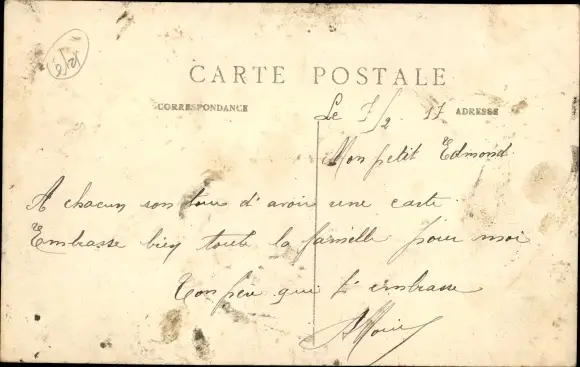 CARTE POSTALE
CORRESPONDANCE
ADRESSE
Le 7/2. 17
Mon petit Edmond
A chacun son tour d'avoir une carte
Embrasse bien toute la famille pour moi
Ton père qui t'embrasse